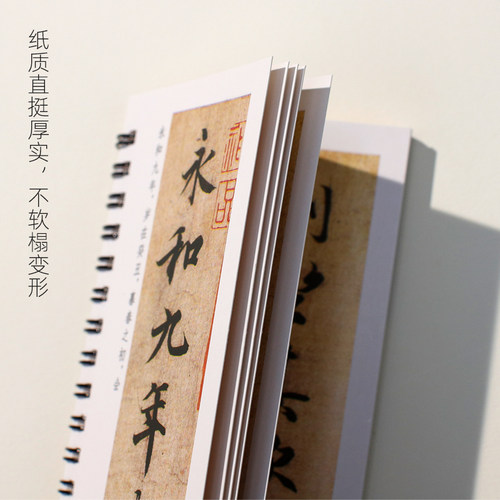 纸质直挺厚实，不软榻变形
永和九年，岁在癸丑，暮春之初，会
永和九年
神品